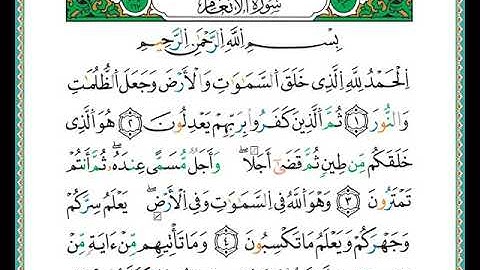 سُورَةُ الأَنْعَامِ
بِسْمِ اللَّهِ الرَّحْمَٰنِ الرَّحِيمِ
الْحَمْدُ لِلَّهِ الَّذِي خَلَقَ السَّمَٰوَٰتِ وَالْأَرْضَ وَجَعَلَ الظُّلُمَٰتِ
وَالنُّورَ ۝١ ثُمَّ الَّذِينَ كَفَرُوا بِرَبِّهِمْ يَعْدِلُونَ ۝٢ هُوَ الَّذِي
خَلَقَكُم مِّن طِينٍ ثُمَّ قَضَىٰٓ أَجَلًا ۖ وَأَجَلٌ مُّسَمًّى عِندَهُۥ ۖ ثُمَّ أَنتُمْ
تَمْتَرُونَ ۝٣ وَهُوَ اللَّهُ فِي السَّمَٰوَٰتِ وَفِي الْأَرْضِ ۖ يَعْلَمُ سِرَّكُمْ
وَجَهْرَكُمْ وَيَعْلَمُ مَا تَكْسِبُونَ ۝٤ وَمَا تَأْتِيهِم مِّنْ ءَايَةٍ مِّنْ